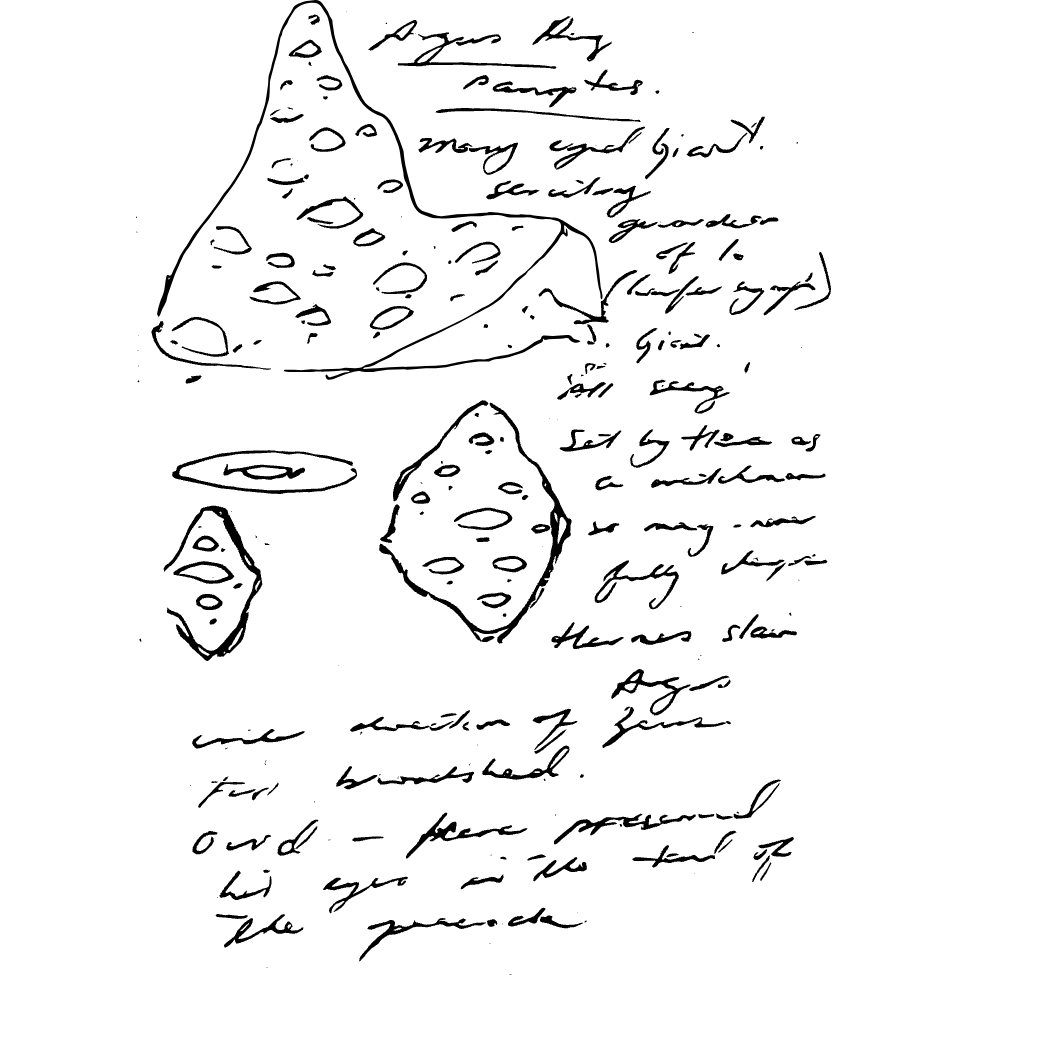 Argus Ring
Panoptes.
many eyed Giant.
guardian
of Io
(heifer nymph)
Giant.
'All seeing'
Set by Hera as
a watchman
so many
fully
Hermes slain
Argus
under direction of Zeus
First bloodshed.
Ovid — Hera preserved
his eyes in the tail of
the peacock